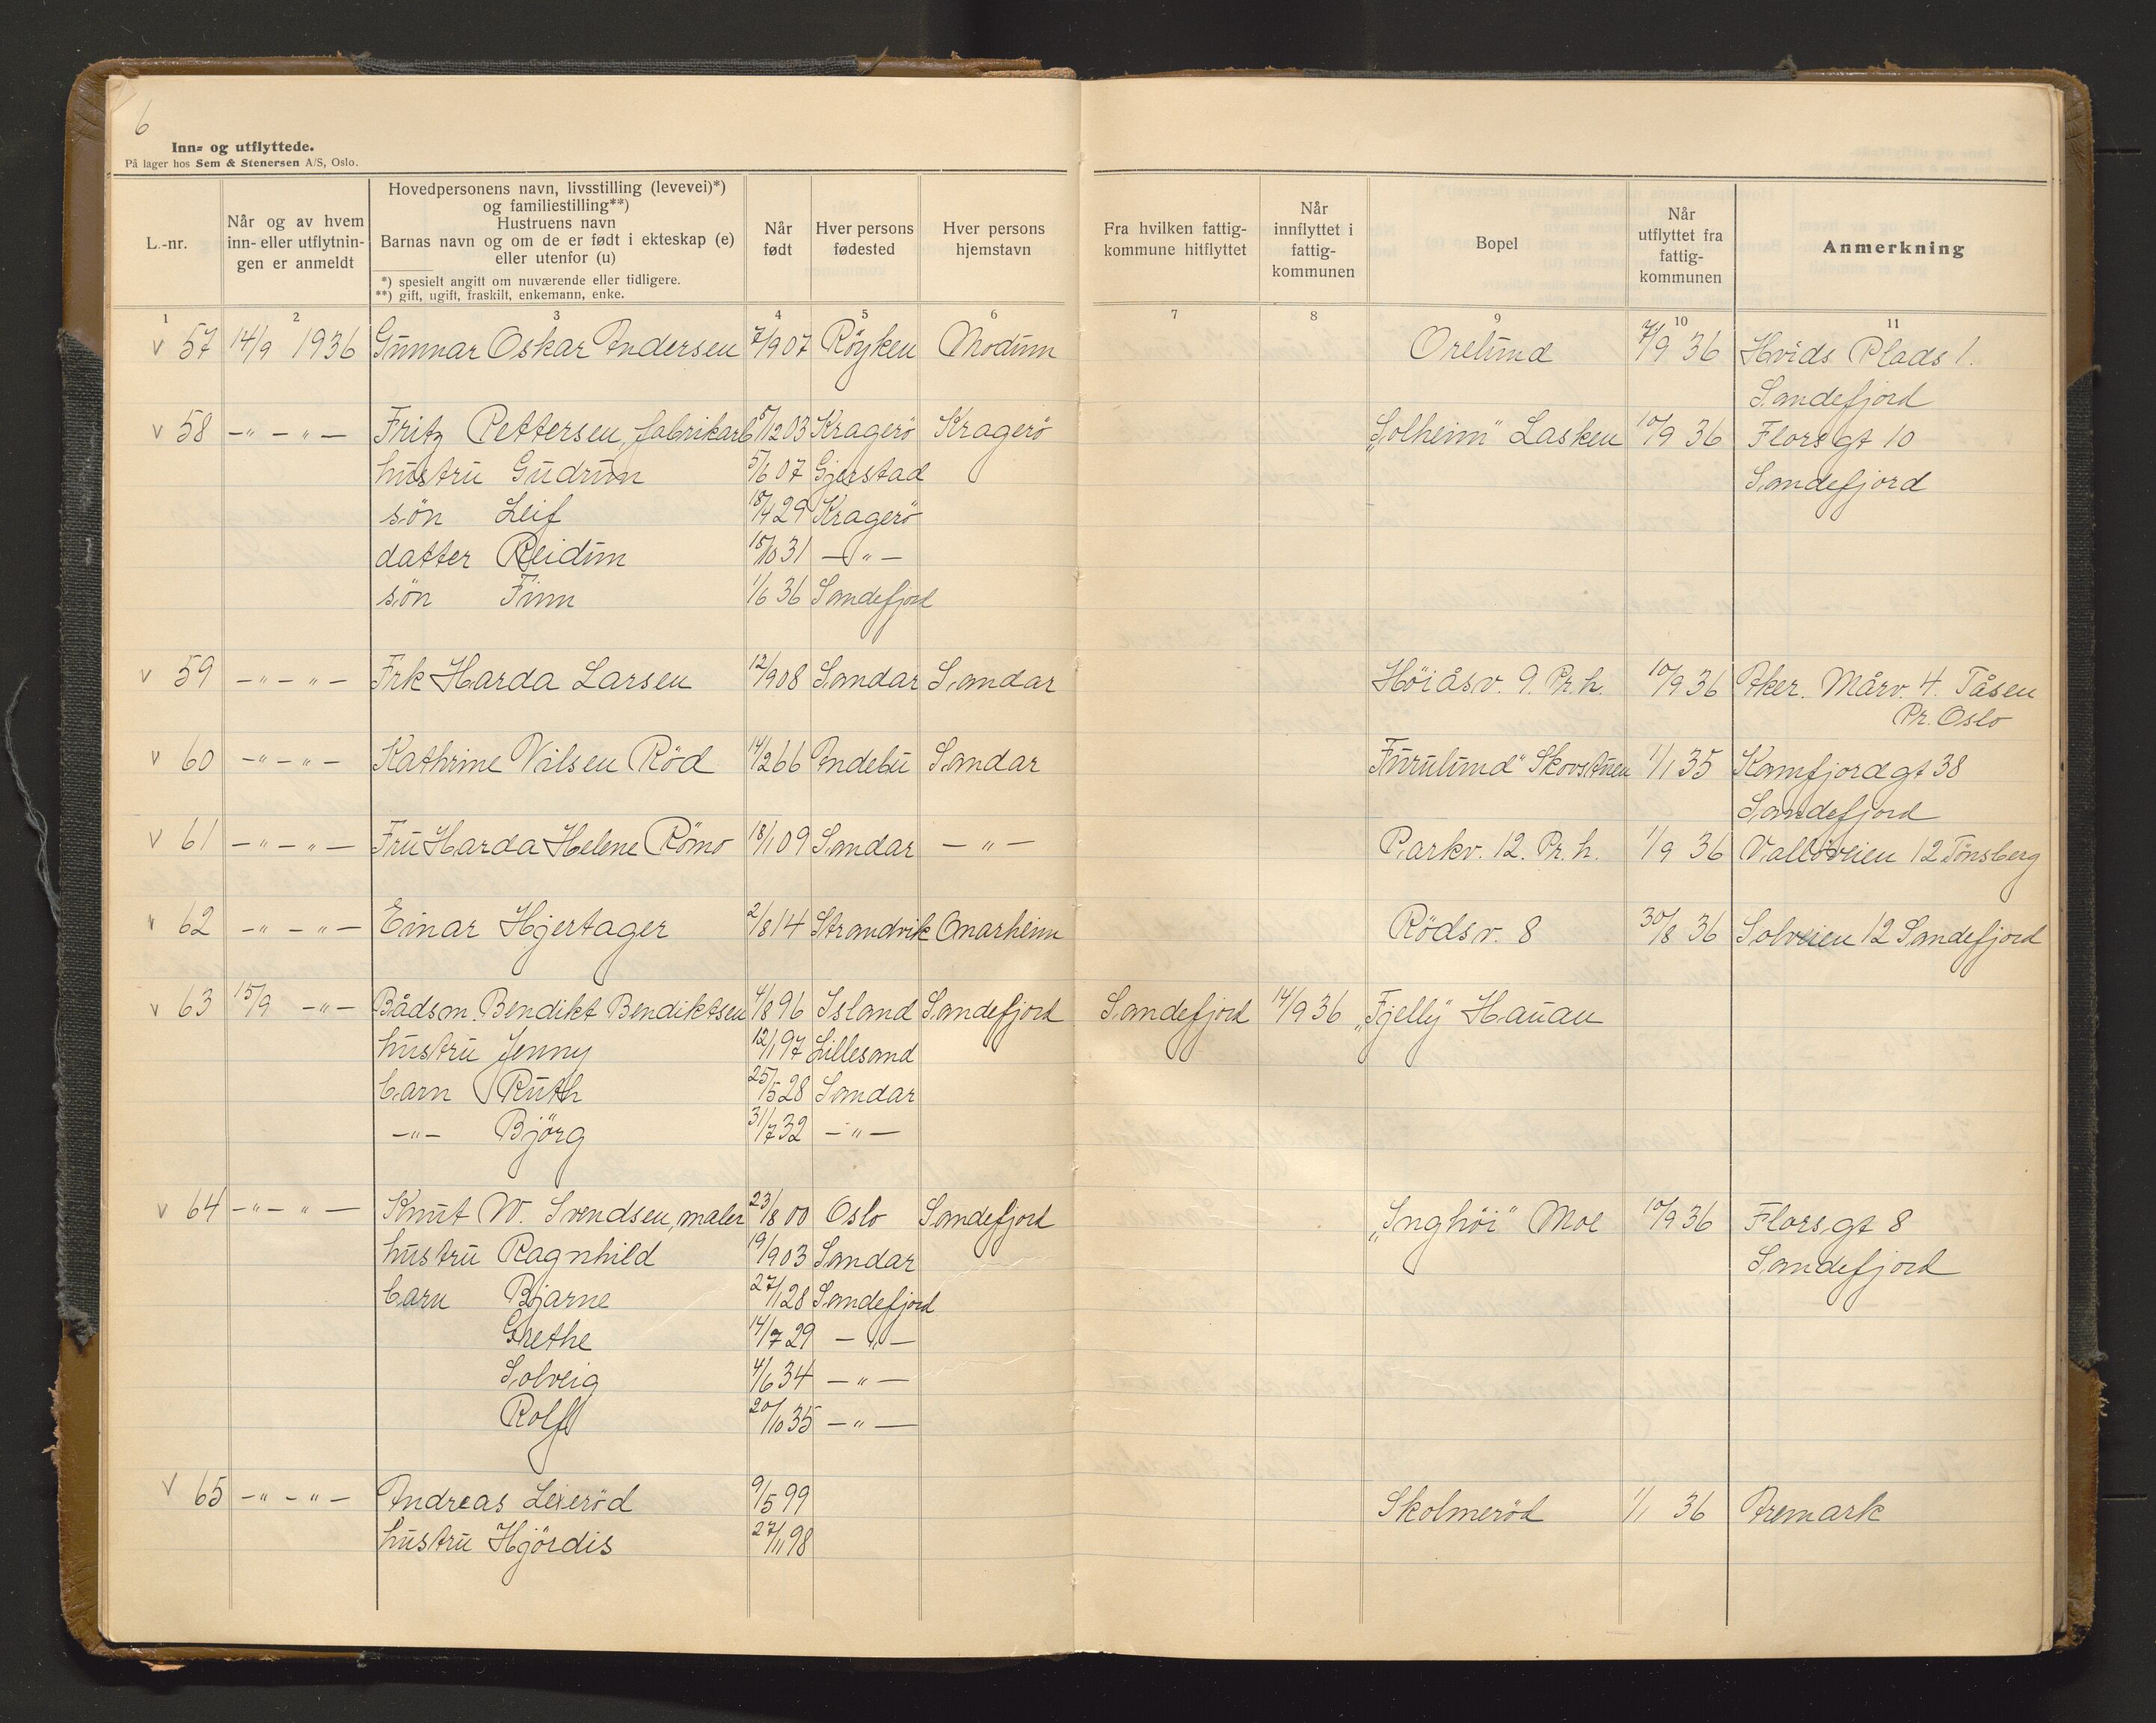 6
Inn- og utflyttede.
På lager hos Sem & Stenersen A/S, Oslo.
L.-nr. | Når og av hvem inn- eller utflytnin-gen er anmeldt | Hovedpersonens navn, livsstilling (levevei)*) og familiestilling**) Hustruens navn Barnas navn og om de er født i ekteskap (e) eller utenfor (u) *) spesielt angitt om nuværende eller tidligere. **) gift, ugift, fraskilt, enkemann, enke. | Når født | Hver persons fødested | Hver persons hjemstavn | Fra hvilken fattig-kommune hitflyttet | Når innflyttet i fattig-kommunen | Bopel | Når utflyttet fra fattig-kommunen | Anmerkning
1 2 3 4 5 6 7 8 9 10 11
v 57 14/9 1936 Gunnar Oskar Andersen 7/9 07 Röyken Modum Orelund 7/9 36 Hvids Plads 1.
Sandefjord
v 58 -"- -"- Fritz Pettersen, fabrikarb 5/12 03 Kragerö Kragerö "Solheim" Lasken 10/9 36 Flors gt 10
hustru Gudrun 5/6 07 Gjerstad Sandefjord
sön Leif 18/4 29 Kragerö
datter Reidun 15/10 31 -"-
sön Finn 1/6 36 Sandefjord
v 59 -"- -"- Frk Harda Larsen 12/9 08 Sandar Sandar Höiåsv. 9. Pr. h. 10/9 36 Aker. Mårv. 4. Tåsen
Pr. Oslo
v 60 -"- -"- Kathrine Nilsen Röd 14/2 66 Andebu Sandar Furulund" Skovstuen 1/1 35 Kamfjordgt 38
Sandefjord
v 61 -"- -"- Fru Harda Helene Römo 18/1 09 Sandar -"- Parkv. 12. Pr. h. 1/9 36 Vallöveien 12 Tönsberg
v 62 -"- -"- Einar Hjertager 2/8 14 Strandvik Onarheim Rödsv. 8 30/8 36 Solveien 12 Sandefjord
v 63 15/9 -"- Bådsm. Bendikt Bendiktsen 4/8 96 Island Sandefjord Sandefjord 14/9 36 "Fjelly" Hauan
hustru Jenny 12/1 97 Lillesand
barn Ruth 25/5 28 Sandar
-"- Björg 31/7 32 -"-
v 64 -"- -"- Knut W. Svendsen, maler 23/8 00 Oslo Sandefjord "Inghöi" Moe 10/9 36 Flors gt 8
hustru Ragnhild 19/9 03 Sandar Sandefjord
barn Bjarne 27/1 28 Sandefjord
Grethe 14/7 29 -"-
Solveig 4/6 34 -"-
Rolf 20/10 35 -"-
v 65 -"- -"- Andreas Lexeröd 9/5 99 Skolmeröd 1/1 36 Aremark
hustru Hjördis 27/11 98